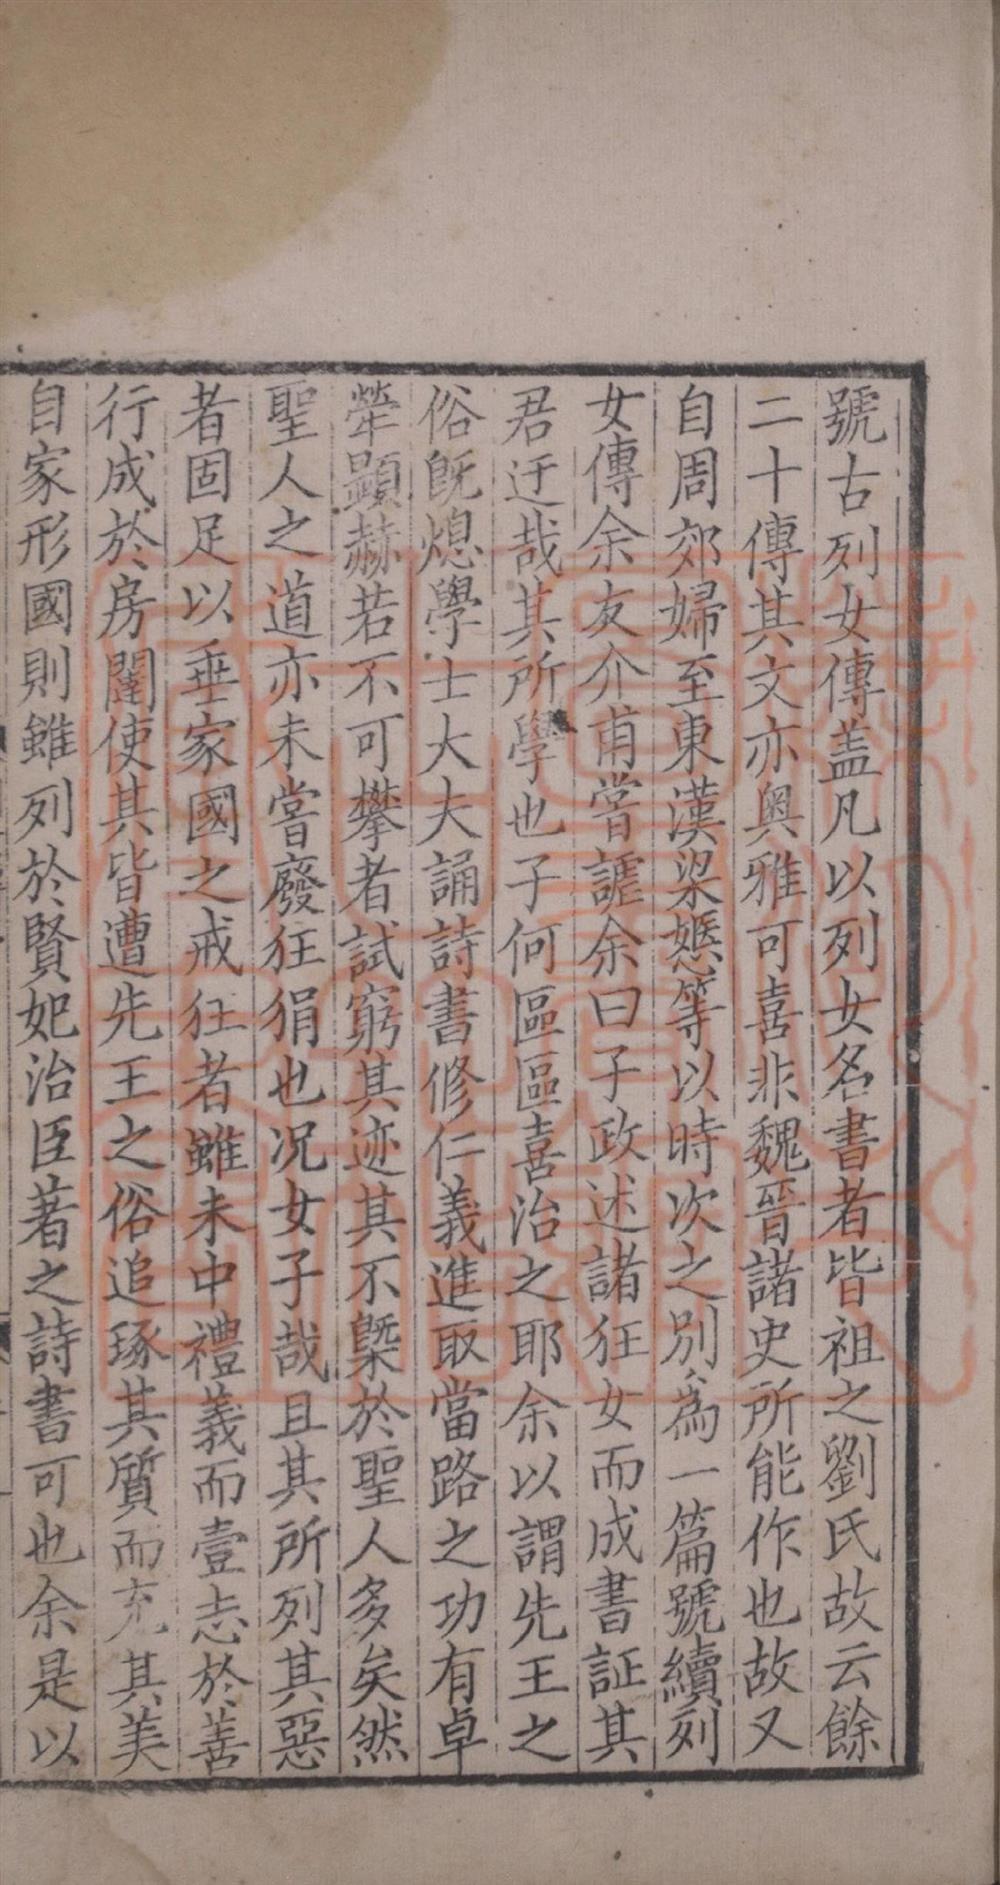 號古列女傳盖凡以列女名書者皆祖之劉氏故云餘
二十傳其文亦奥雅可喜非魏晉諸史所能作也故又
自周郊婦至東漢梁嫕等以時次之别為一篇號續列
女傳余友介甫嘗謔余曰子政述諸狂女而成書証其
君迂哉其所學也子何區區喜治之耶余以謂先王之
俗既熄學士大夫誦詩書修仁義進取當路之功有卓
犖顯赫若不可攀者試窮其迹其不槩於聖人多矣然
聖人之道亦未嘗廢狂狷也况女子哉且其所列其惡
者固足以垂家國之戒狂者雖未中禮義而壹志於善
行成於房闥使其皆遭先王之俗追琢其質而充其美
自家形國則雖列於賢妃治臣著之詩書可也余是以